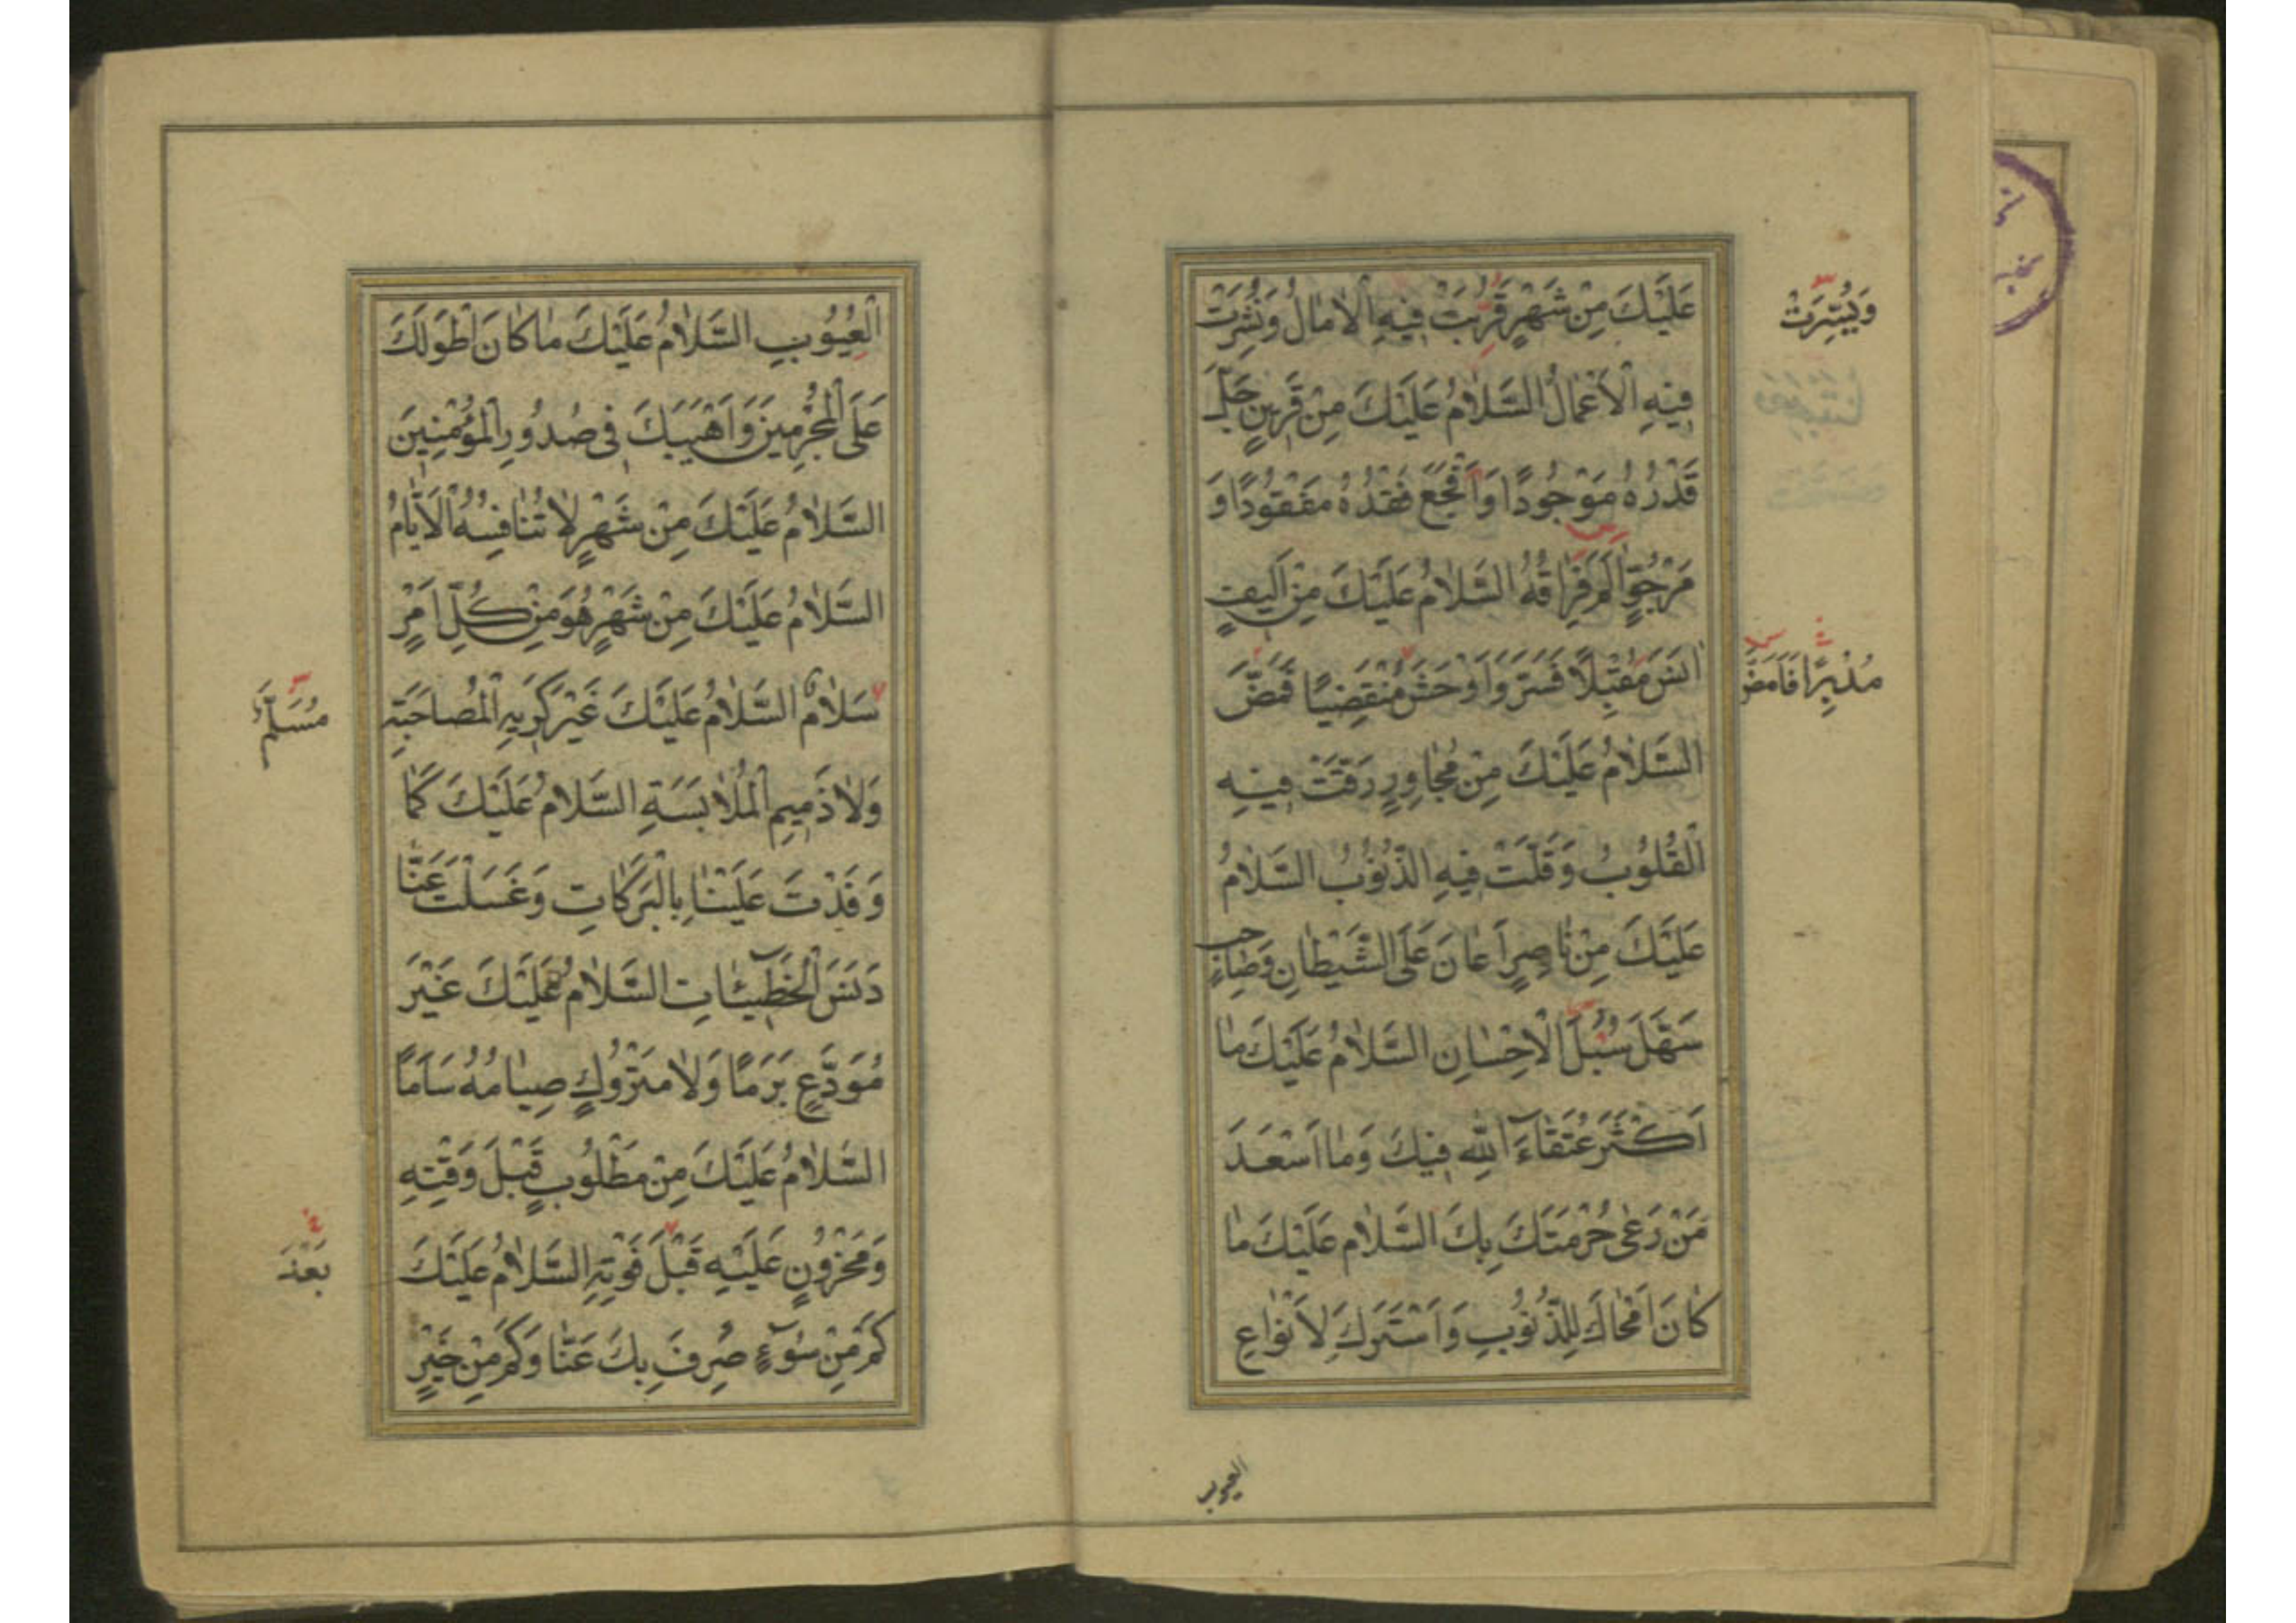 عَلَيْكَ مِنْ شَهْرٍ قَرُبَتْ فِيهِ الْاٰمالُ وَنُشِرَتْ
وَيُسِّرَتْ
فِيْهِ الْاَعْمالُ السَّلامُ عَلَيْكَ مِنْ قَرِينٍ جَلَّ
قَدْرُهُ مَوْجُودًا وَاَفْجَعَ فَقْدُهُ مَفْقُودًا وَ
مَرْجُوٍّ اٰلَمَ فِرَاقُهُ السَّلامُ عَلَيْكَ مِنْ اَلِيفٍ
اٰنَسَ مُقْبِلًا فَسَرَّ وَاَوْحَشَ مُنْقَضِيًا فَمَضَّ
مُدْبِرًا فَاَمَضَّ
السَّلامُ عَلَيْكَ مِنْ مُجاوِرٍ رَقَّتْ فِيْهِ
الْقُلُوبُ وَقَلَّتْ فِيهِ الذُّنُوبُ السَّلامُ
عَلَيْكَ مِنْ ناصِرٍ اَعانَ عَلَى الشَّيْطانِ وَصاحِبٍ
سَهَّلَ سُبُلَ الْاِحْسانِ السَّلامُ عَلَيْكَ ما
اَكْثَرَ عُتَقاءَ اللّٰهِ فِيكَ وَما اَسْعَدَ
مَنْ رَعٰى حُرْمَتَكَ بِكَ السَّلامُ عَلَيْكَ ما
كانَ اَمْحاكَ لِلذُّنُوبِ وَاَسْتَرَكَ لِاَنْواعِ
العيوب
الْعُيُوبِ السَّلامُ عَلَيْكَ ما كانَ اَطْوَلَكَ
عَلَى الْمُجْرِمِينَ وَاَهْيَبَكَ فِى صُدُورِ الْمُؤْمِنِينَ
السَّلامُ عَلَيْكَ مِنْ شَهْرٍ لا تُنافِسُهُ الْاَيّامُ
السَّلامُ عَلَيْكَ مِنْ شَهْرٍ هُوَ مِنْ كُلِّ اَمْرٍ
سَلامٌ السَّلامُ عَلَيْكَ غَيْرَ كَرِيهِ الْمُصاحَبَةِ
وَلا ذَمِيمِ الْمُلابَسَةِ السَّلامُ عَلَيْكَ كَما
وَفَدْتَ عَلَيْنا بِالْبَرَكاتِ وَغَسَلْتَ عَنّا
دَنَسَ الْخَطِيئاتِ السَّلامُ عَلَيْكَ غَيْرَ
مُوَدَّعٍ بَرَمًا وَلا مَتْرُوكٍ صِيامُهُ سَاَمًا
السَّلامُ عَلَيْكَ مِنْ مَطْلُوبٍ قَبْلَ وَقْتِهِ
وَمَحْزُونٍ عَلَيْهِ قَبْلَ فَوْتِهِ السَّلامُ عَلَيْكَ
بَعْدَ
كَمْ مِنْ سُوۤءٍ صُرِفَ بِكَ عَنّا وَكَمْ مِنْ خَيْرٍ